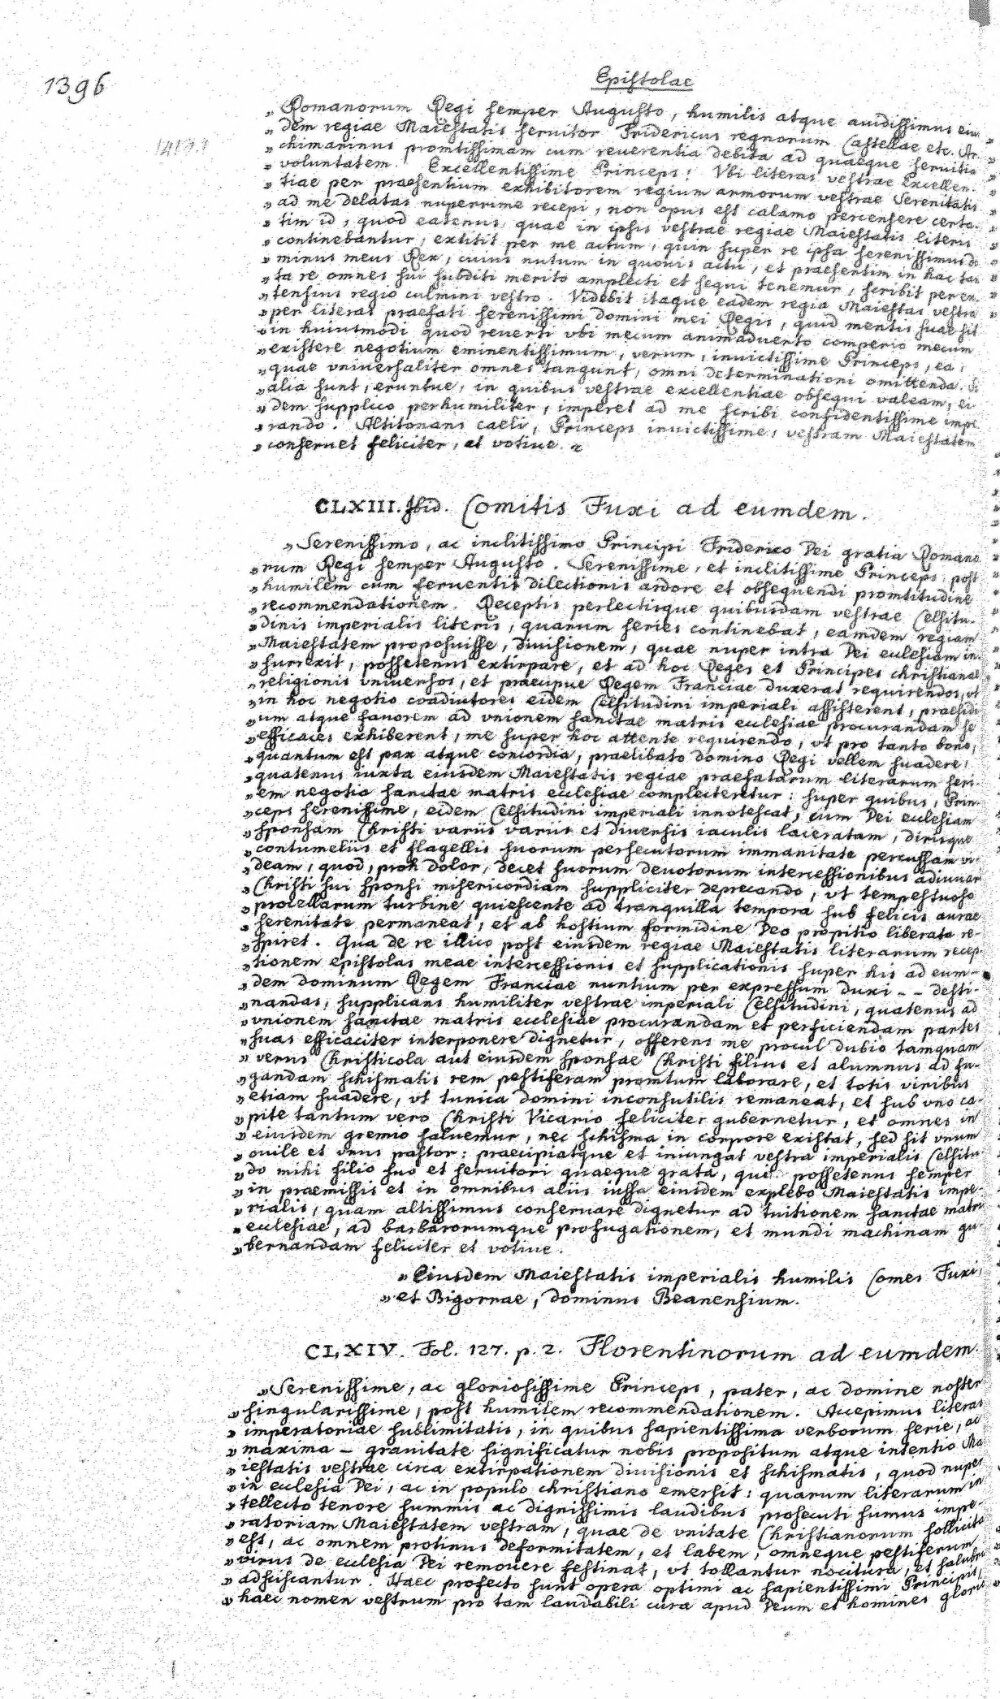 1396
Epistolae
„Romanorum Regi semper Augusto, humilis atque auidissimus eius-
„dem regiae Maiestatis seruitor Fridericus regnorum Castellae etc. Ar-
„chimarinus promtissimam cum reuerentia debita ad quaeque seruitia
„voluntatem. Excellentissime Princeps! Vbi literas vestrae Excellen-
„tiae per praesentium exhibitorem regium armorum vestrae Serenitatis
„ad me delatas nuperrime recepi, non opus est calamo percensere certa-
„tim id, quod eatenus, quae in ipsis vestrae regiae Maiestatis literis
„continebantur, extitit per me actum, quin super re ipsa serenissimus do
„minus meus Rex, cuius nutum in quouis actu, et praesentim in hac tan
„ta re omnes sui subditi merito amplecti et sequi tenemur, scribit per ex-
„tensius regio culmini vestro. Videbit itaque eadem regia Maiestas vestra
„per literas praefati serenissimi domini mei Regis, quid mentis suae sit
„in huiusmodi quod reuerti vbi mecum animaduerto comperio mecum
„existere negotium eminentissimum, verum, inuictissime Princeps, ea,
„quae vniuersaliter omnes tangunt, omni determinationi omittenda. Si
„alia sunt, eruntue, in quibus vestrae excellentiae obsequi valeam, ei
„dem supplico perhumiliter, imperet ad me scribi confidentissime impe
„rando. Altitonans caeli, Princeps inuictissime, vestram Maiestatem
„conseruet feliciter, ac votiue.
CLXIII. Ibid. Comitis Fuxi ad eumdem.
„Serenissimo, ac inclitissimo Principi Friderico Dei gratia Romano
„rum Regi semper Augusto. Serenissime, et inclitissime Princeps, post
„humilem cum feruentis dilectionis ardore et obsequendi promtitudine
„recommendationem. Receptis perlectisque quibusdam vestrae Celsitu-
„dinis imperialis literis, quarum series continebat, eamdem regiam
„Maiestatem proposuisse, diuisionem, quae nuper intra Dei eclesiam in-
„surrexit, possetenus extirpare, et ad hoc Reges et Principes christianae
„religionis vniuersos, et praecipue Regem Franciae duxerat requirendos, vt
„in hoc negotio coadiutores eidem Celsitudini imperiali assisterent, praesidi
„um atque fauorem ad vnionem sanctae matris ecclesiae procurandam se
„efficaces exhiberent, me super hoc attente requirendo, vt pro tanto bono,
„quantum est pax atque concordia, praelibato domino Regi vellem suadere,
„quatenus iuxta eiusdem Maiestatis regiae praefatarum literarum seri-
„em negotio sanctae matris ecclesiae complecteretur: super quibus, Prin-
„ceps serenissime, eidem Celsitudini imperiali innotescat, cum Dei ecclesiam
„sponsam Christi variis variis et diuersis iaculis laceratam, dirisque
„contumeliis et flagellis suorum persecutorum immanitate percussam vi-
„deam, quod, proh dolor, decet suorum deuotorum intercessionibus adiuuar
„Christi sui sponsi misericordiam suppliciter deprecando, vt tempestuoso
„procellarum turbine quiescente ad tranquilla tempora sub felicis aurae
„serenitate permaneat, et ab hostium formidine Deo propitio liberata re-
„spiret. Qua de re illico post eiusdem regiae Maiestatis literarum recep-
„tionem epistolas meae intercessionis et supplicationis super his ad eum-
„dem dominum Regem Franciae nuntium per expressum duxi -- desti-
„nandas, supplicans humiliter vestrae imperiali Celsitudini, quatenus ad
„vnionem sanctae matris ecclesiae procurandam et perficiendam partes
„suas efficaciter interponere dignetur, offerens me procul dubio tamquam
„verus Christicola aut eiusdem sponsae Christi filius et alumnus ad fu-
„gandam schismatis rem pestiferam promtum laborare, et totis viribus
„etiam suadere, vt tunica domini inconsutilis remaneat, et sub vno ca-
„pite tantum vero Christi Vicario feliciter gubernetur, et omnes in
„eiusdem gremio saluemur, nec schisma in corpore existat, sed sit vnum
„ouile et vnus pastor: praecipiatque et iniungat vestra imperialis Celsitu-
„do mihi filio suo et seruitori quaeque grata, qui possetenus semper
„in praemissis et in omnibus aliis iussa eiusdem explebo Maiestatis impe-
„rialis, quam altissimus conseruare dignetur ad tuitionem sanctae matris
„ecclesiae, ad barbarorumque profugationem, et mundi machinam gu-
„bernandam feliciter et votiue.
„Eiusdem Maiestatis imperialis humilis Comes Fuxi,
„et Bigornae, dominus Bearnensium.
CLXIV. Fol. 127. p. 2. Florentinorum ad eumdem.
„Serenissime, ac gloriosissime Princeps, pater, ac domine noster
„singularissime, post humilem recommendationem. Accepimus literas
„imperatoriae sublimitatis, in quibus sapientissima verborum serie, ac
„maxima – grauitate significatur nobis propositum atque intentio Ma
„iestatis vestrae circa extirpationem diuisionis et schismatis, quod nuper
„in ecclesia Dei, ac in populo christiano emersit: quarum literarum in
„tellecto tenore summis ac dignissimis laudibus prosecuti sumus impe-
„ratoriam Maiestatem vestram, quae de vnitate Christianorum sollicita
„est, ac omnem protinus deformitatem, et labem, omneque pestiferum
„virus de ecclesia Dei remouere festinat, vt tollantur nocitura, et salubria
„adsciscantur. Haec profecto sunt opera optimi ac sapientissimi Principis,
„haec nomen vestrum pro tam laudabili cura apud Deum et homines glorio